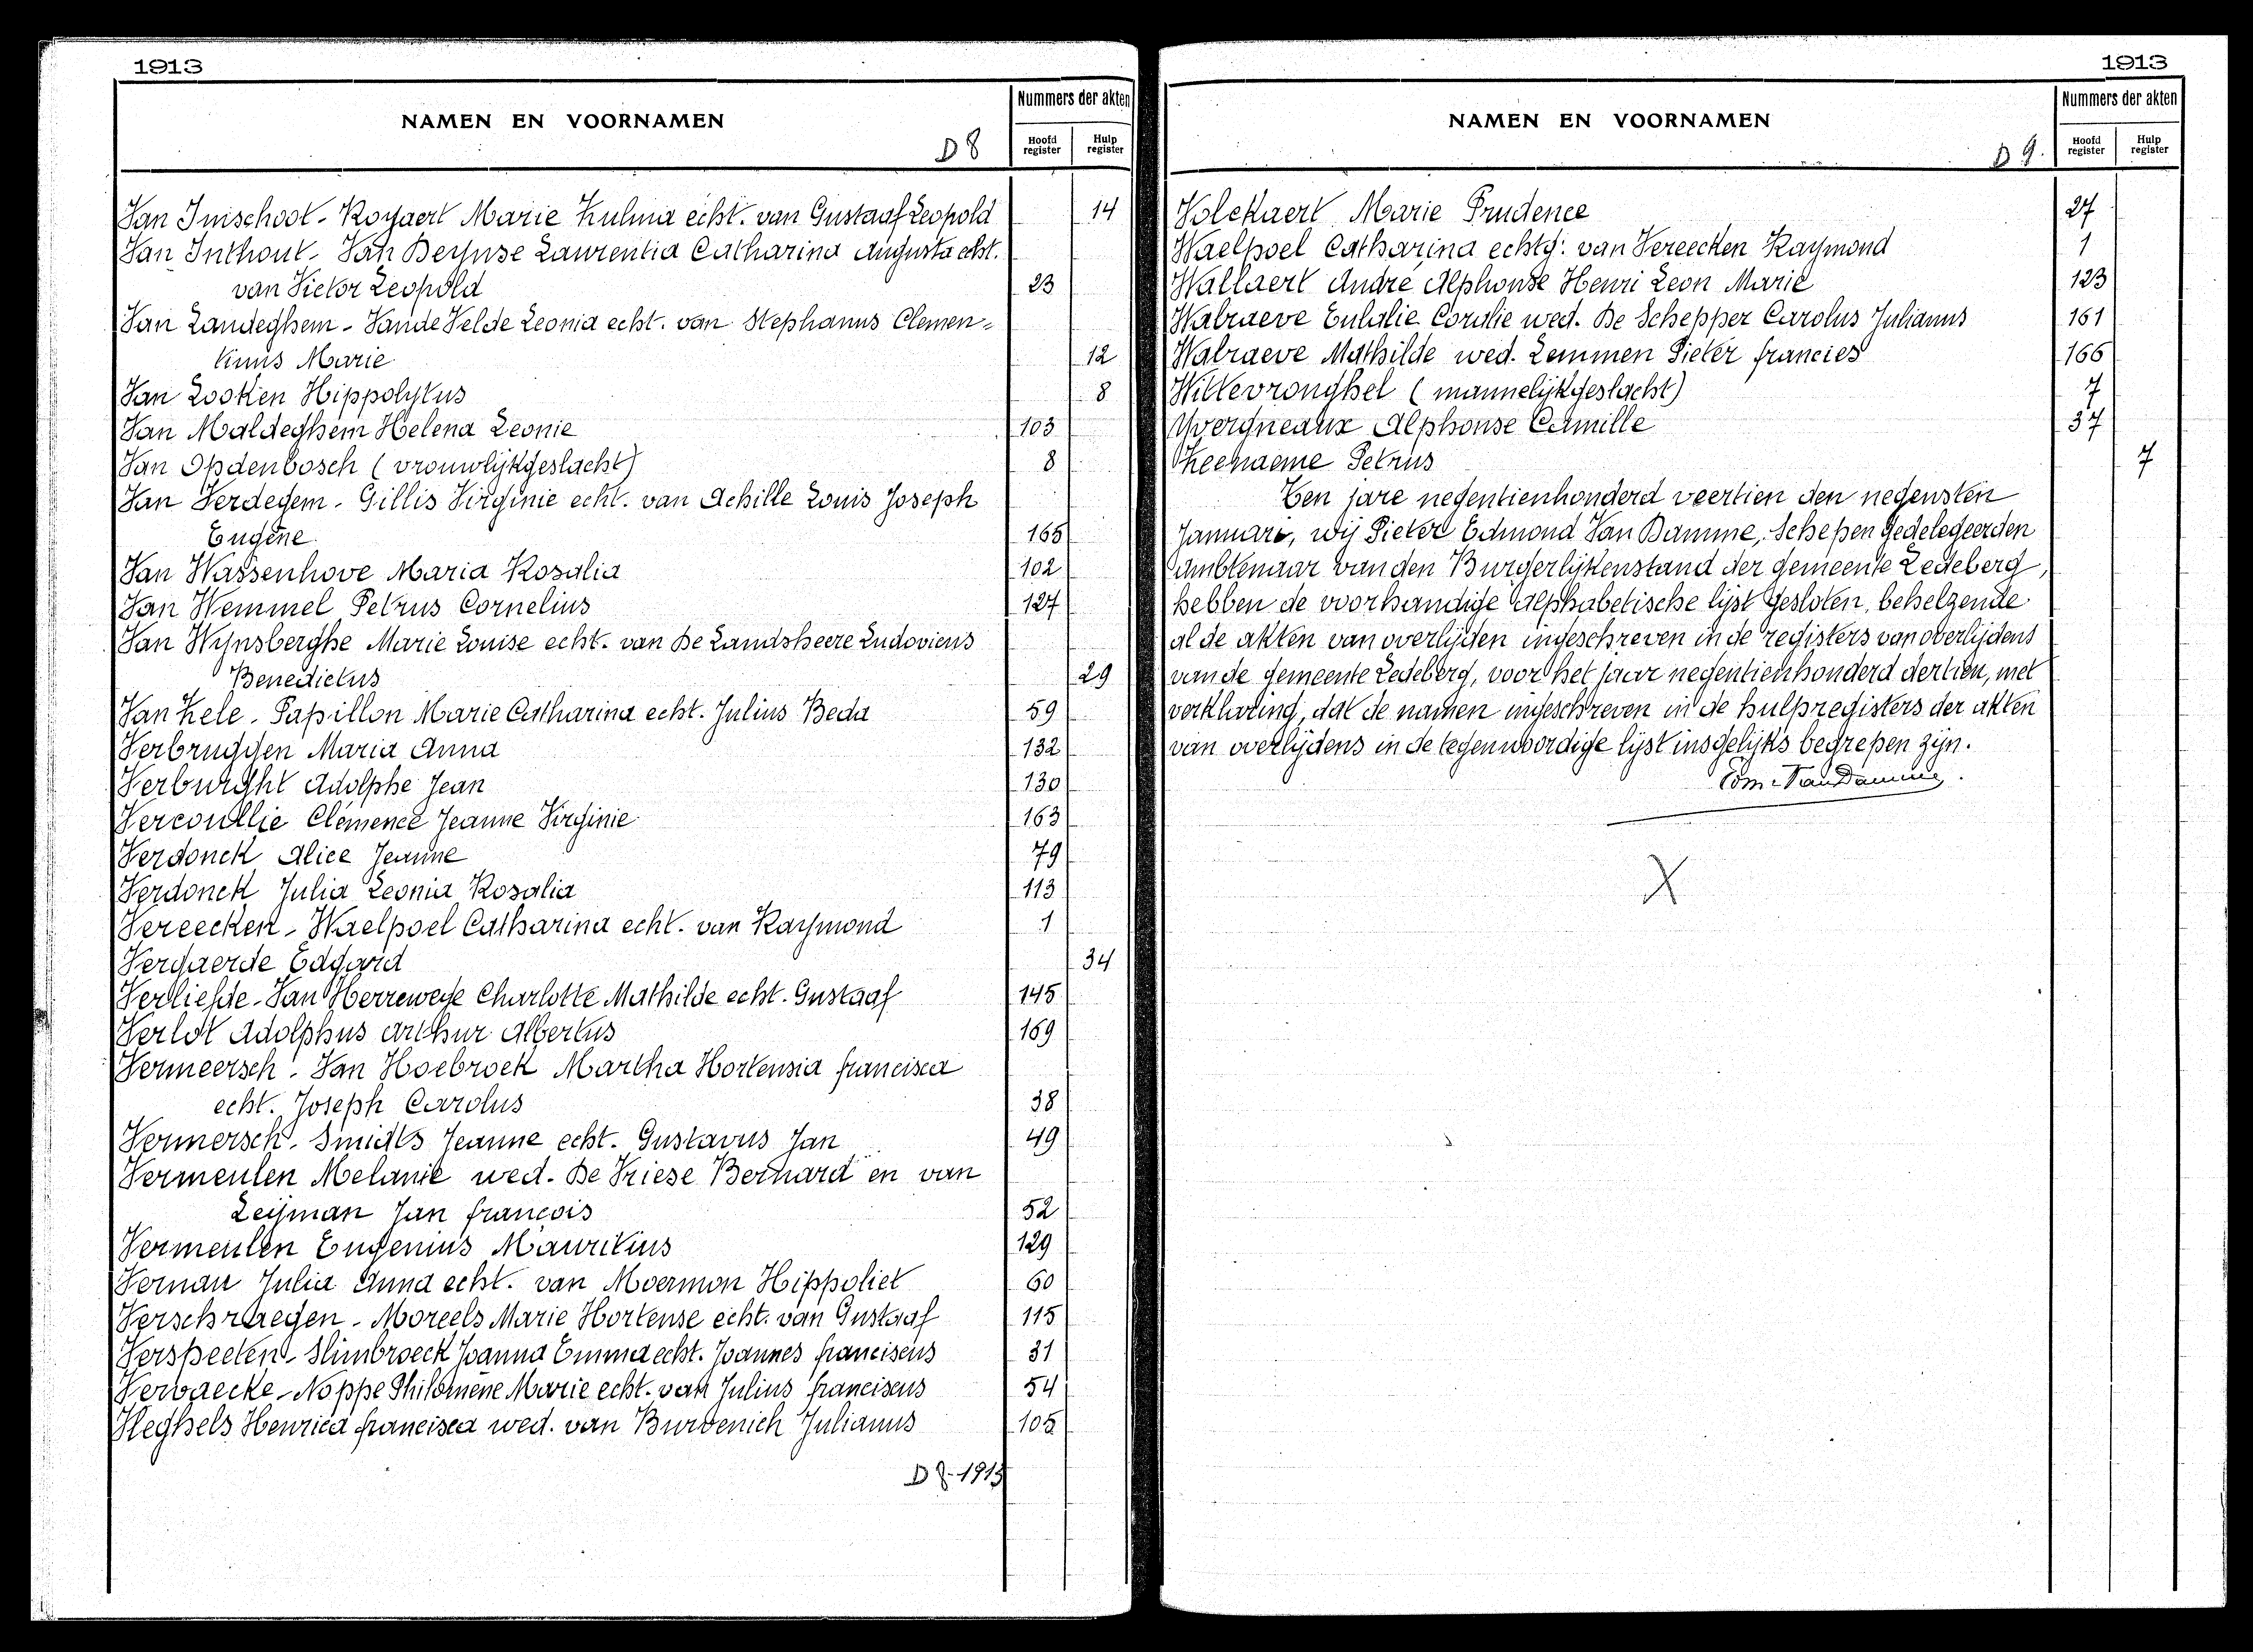 1913
NAMEN EN VOORNAMEN
Nummers der akten
D 8
Hoofd register
Hulp register
Van Imschoot - Royaert Marie Zulma echt. van Gustaaf Leopold 14
Van Inthout - Van Deynse Laurentia Catharina Augusta echt.
van Victor Leopold 23
Van Landeghem - Vande Velde Leonia echt. van Stephanus Clemen=
tinus Marie 12
Van Looken Hippolytus 8
Van Maldeghem Helena Leonie 103
Van Opdenbosch (vrouwlijkgeslacht) 8
Van Verdegem - Gillis Virginie echt. van Achille Louis Joseph
Eugène 165
Van Wassenhove Maria Rosalia 102
Van Wemmel Petrus Cornelius 127
Van Wynsberghe Marie Louise echt. van De Landsheere Ludovicus
Benedictus 29
Van Zele - Papillon Marie Catharina echt. Julius Beda 59
Verbrugghen Maria Anna 132
Verburght Adolphe Jean 130
Vercoullie Clémence Jeanne Virginie 163
Verdonck Alice Jeanne 79
Verdonck Julia Leonia Rosalia 113
Vereecken - Waelpoel Catharina echt. van Raymond 1
Vergaerde Edgard 34
Verliefde - Van Herrewege Charlotte Mathilde echt. Gustaaf 145
Verlot Adolphus Arthur Albertus 169
Vermeersch - Van Hoebroek Martha Hortensia francisca
echt. Joseph Carolus 38
Vermersch - Smidts Jeanne echt. Gustavus Jan 49
Vermeulen Melanie wed. De Vriese Bernard en van
Leijman Jan françois 52
Vermeulen Eugenius Mauritius 129
Vernau Julia Anna echt. van Moermon Hippoliet 60
Verschraegen - Moreels Marie Hortense echt. van Gustaaf 115
Verspeeten - Slimbroeck Joanna Emma echt. Joannes franciscus 31
Vervaecke - Noppe Philomène Marie echt. van Julius franciscus 54
Vleghels Henrica francisca wed. van Burvenich Julianus 105
D 8 - 1913
1913
NAMEN EN VOORNAMEN
Nummers der akten
D 9.
Hoofd register
Hulp register
Volckaert Marie Prudence 27
Waelpoel Catharina echtg: van Vereecken Raymond 1
Wallaert André Alphonse Henri Leon Marie 123
Walraeve Eulalie Coralie wed. De Schepper Carolus Julianus 161
Walraeve Mathilde wed. Lemmen Pieter francies 166
Wittevronghel (mannelijkgeslacht) 7
Yvergneaux Alphonse Camille 37
Zeenaeme Petrus 7
Ten jare negentienhonderd veertien den negensten
Januari, wij Pieter Edmond Van Damme, Schepen gedelegeerden
ambtenaar van den Burgerlijkenstand der gemeente Ledeberg,
hebben de voorhandige alphabetische lijst gesloten, behelzende
al de akten van overlijden ingeschreven in de registers van overlijdens
van de gemeente Ledeberg, voor het jaar negentienhonderd dertien, met
verklaring, dat de namen ingeschreven in de hulpregisters der akten
van overlijdens in de tegenwoordige lijst insgelijks begrepen zijn.
Edm. Van Damme.
X